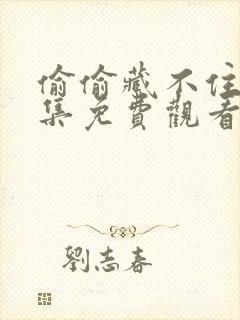 偷偷藏不住
集免費觀看
劉志春